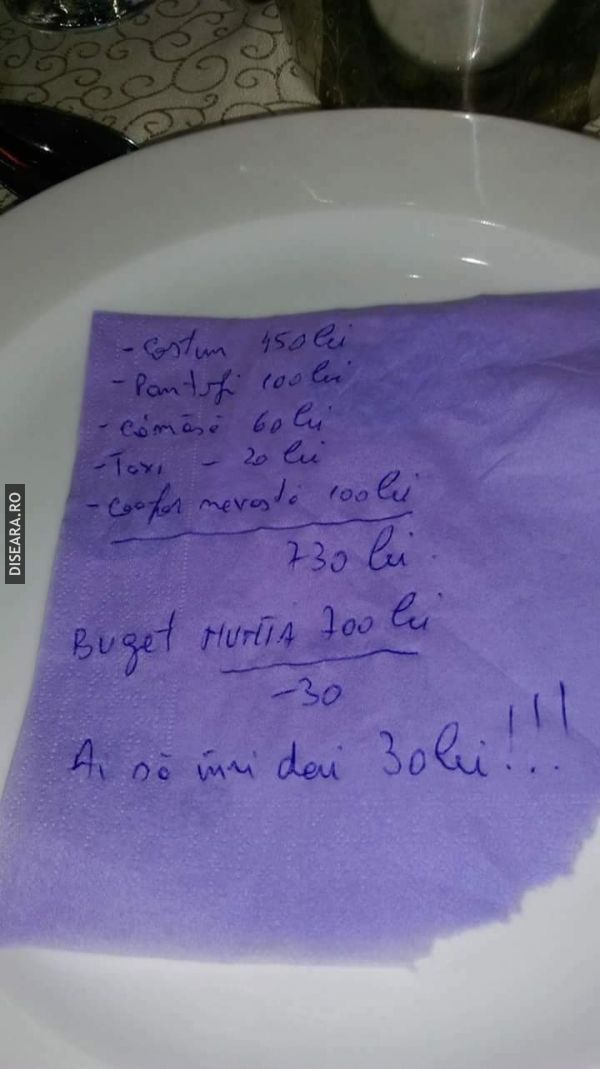 - Costum 450 lei
- Pantofi 100 lei
- Cămașă 60 lei
- Taxi - 20 lei
- Coafor nevastă 100 lei
730 lei
Buget NUNTA 700 lei
-30
Ai să îmi dai 30 lei!!!
DISEARA.RO